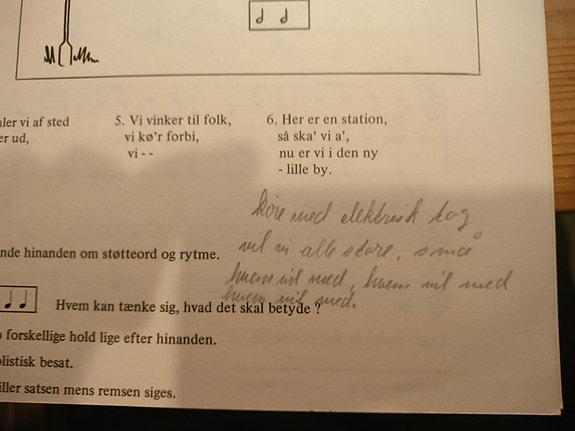 ler vi af sted
er ud,
5. Vi vinker til folk,
vi kø'r forbi,
vi - -
6. Her er en station,
så ska' vi a',
nu er vi i den ny
- lille by.
køre med elektrisk tog
vil vi alle store, små
hvem vil med, hvem vil med
hvem vil med.
nde hinanden om støtteord og rytme.
Hvem kan tænke sig, hvad det skal betyde ?
forskellige hold lige efter hinanden.
listisk besat.
iller satsen mens remsen siges.